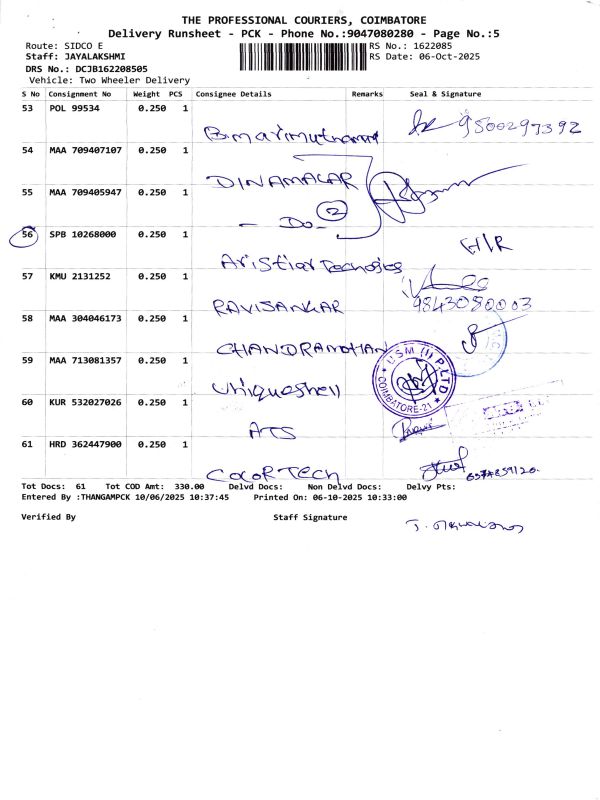 THE PROFESSIONAL COURIERS, COIMBATORE
Delivery Runsheet - PCK - Phone No.:9047080280 - Page No.:5
Route: SIDCO E RS No.: 1622085
Staff: JAYALAKSHMI RS Date: 06-Oct-2025
DRS No.: DCJB162208505
Vehicle: Two Wheeler Delivery
S No Consignment No Weight PCS Consignee Details Remarks Seal & Signature
53 POL 99534 0.250 1
9500297392
54 MAA 709407107 0.250 1
DINAMALAR
55 MAA 709405947 0.250 1
- Do - 2
56 SPB 10268000 0.250 1
H/R
57 KMU 2131252 0.250 1
RAVISANKAR 9843050003
58 MAA 304046173 0.250 1
CHANDRAMOHAN
59 MAA 713081357 0.250 1
USM (I) P LTD
COIMBATORE-21
Uniqueshell
60 KUR 532027026 0.250 1
ATS
61 HRD 362447900 0.250 1
COLOR TECH
Tot Docs: 61 Tot COD Amt: 330.00 Delvd Docs: Non Delvd Docs: Delvy Pts:
Entered By :THANGAMPCK 10/06/2025 10:37:45 Printed On: 06-10-2025 10:33:00
Verified By Staff Signature